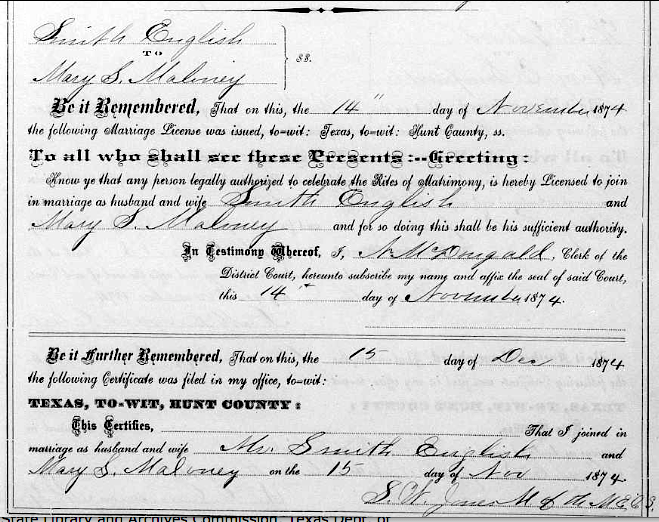 Smith English
TO
Mary S. Maloney
ss.
Be it Remembered, That on this, the 14" day of November 1874
the following Marriage License was issued, to=wit: Texas, to=wit: Hunt County, ss.
To all who shall see these Presents:--Greeting:
Know ye that any person legally authorized to celebrate the Rites of Matrimony, is hereby Licensed to join
in marriage as husband and wife Smith English and
Mary S. Maloney and for so doing this shall be his sufficient authority.
In Testimony Whereof, I, N. McDougald, Clerk of the
District Court, hereunto subscribe my name and affix the seal of said Court,
this 14 day of November 1874.
Be it Further Remembered, That on this, the 15 day of Dec 1874
the following Certificate was filed in my office, to=wit:
TEXAS, TO-WIT, HUNT COUNTY:
This Certifies, That I joined in
marriage as husband and wife Mr. Smith English and
Mary S. Maloney on the 15 day of Nov 1874.
S. W. Jones M of the M E C S.
State Library and Archives Commission, Texas Dept. of